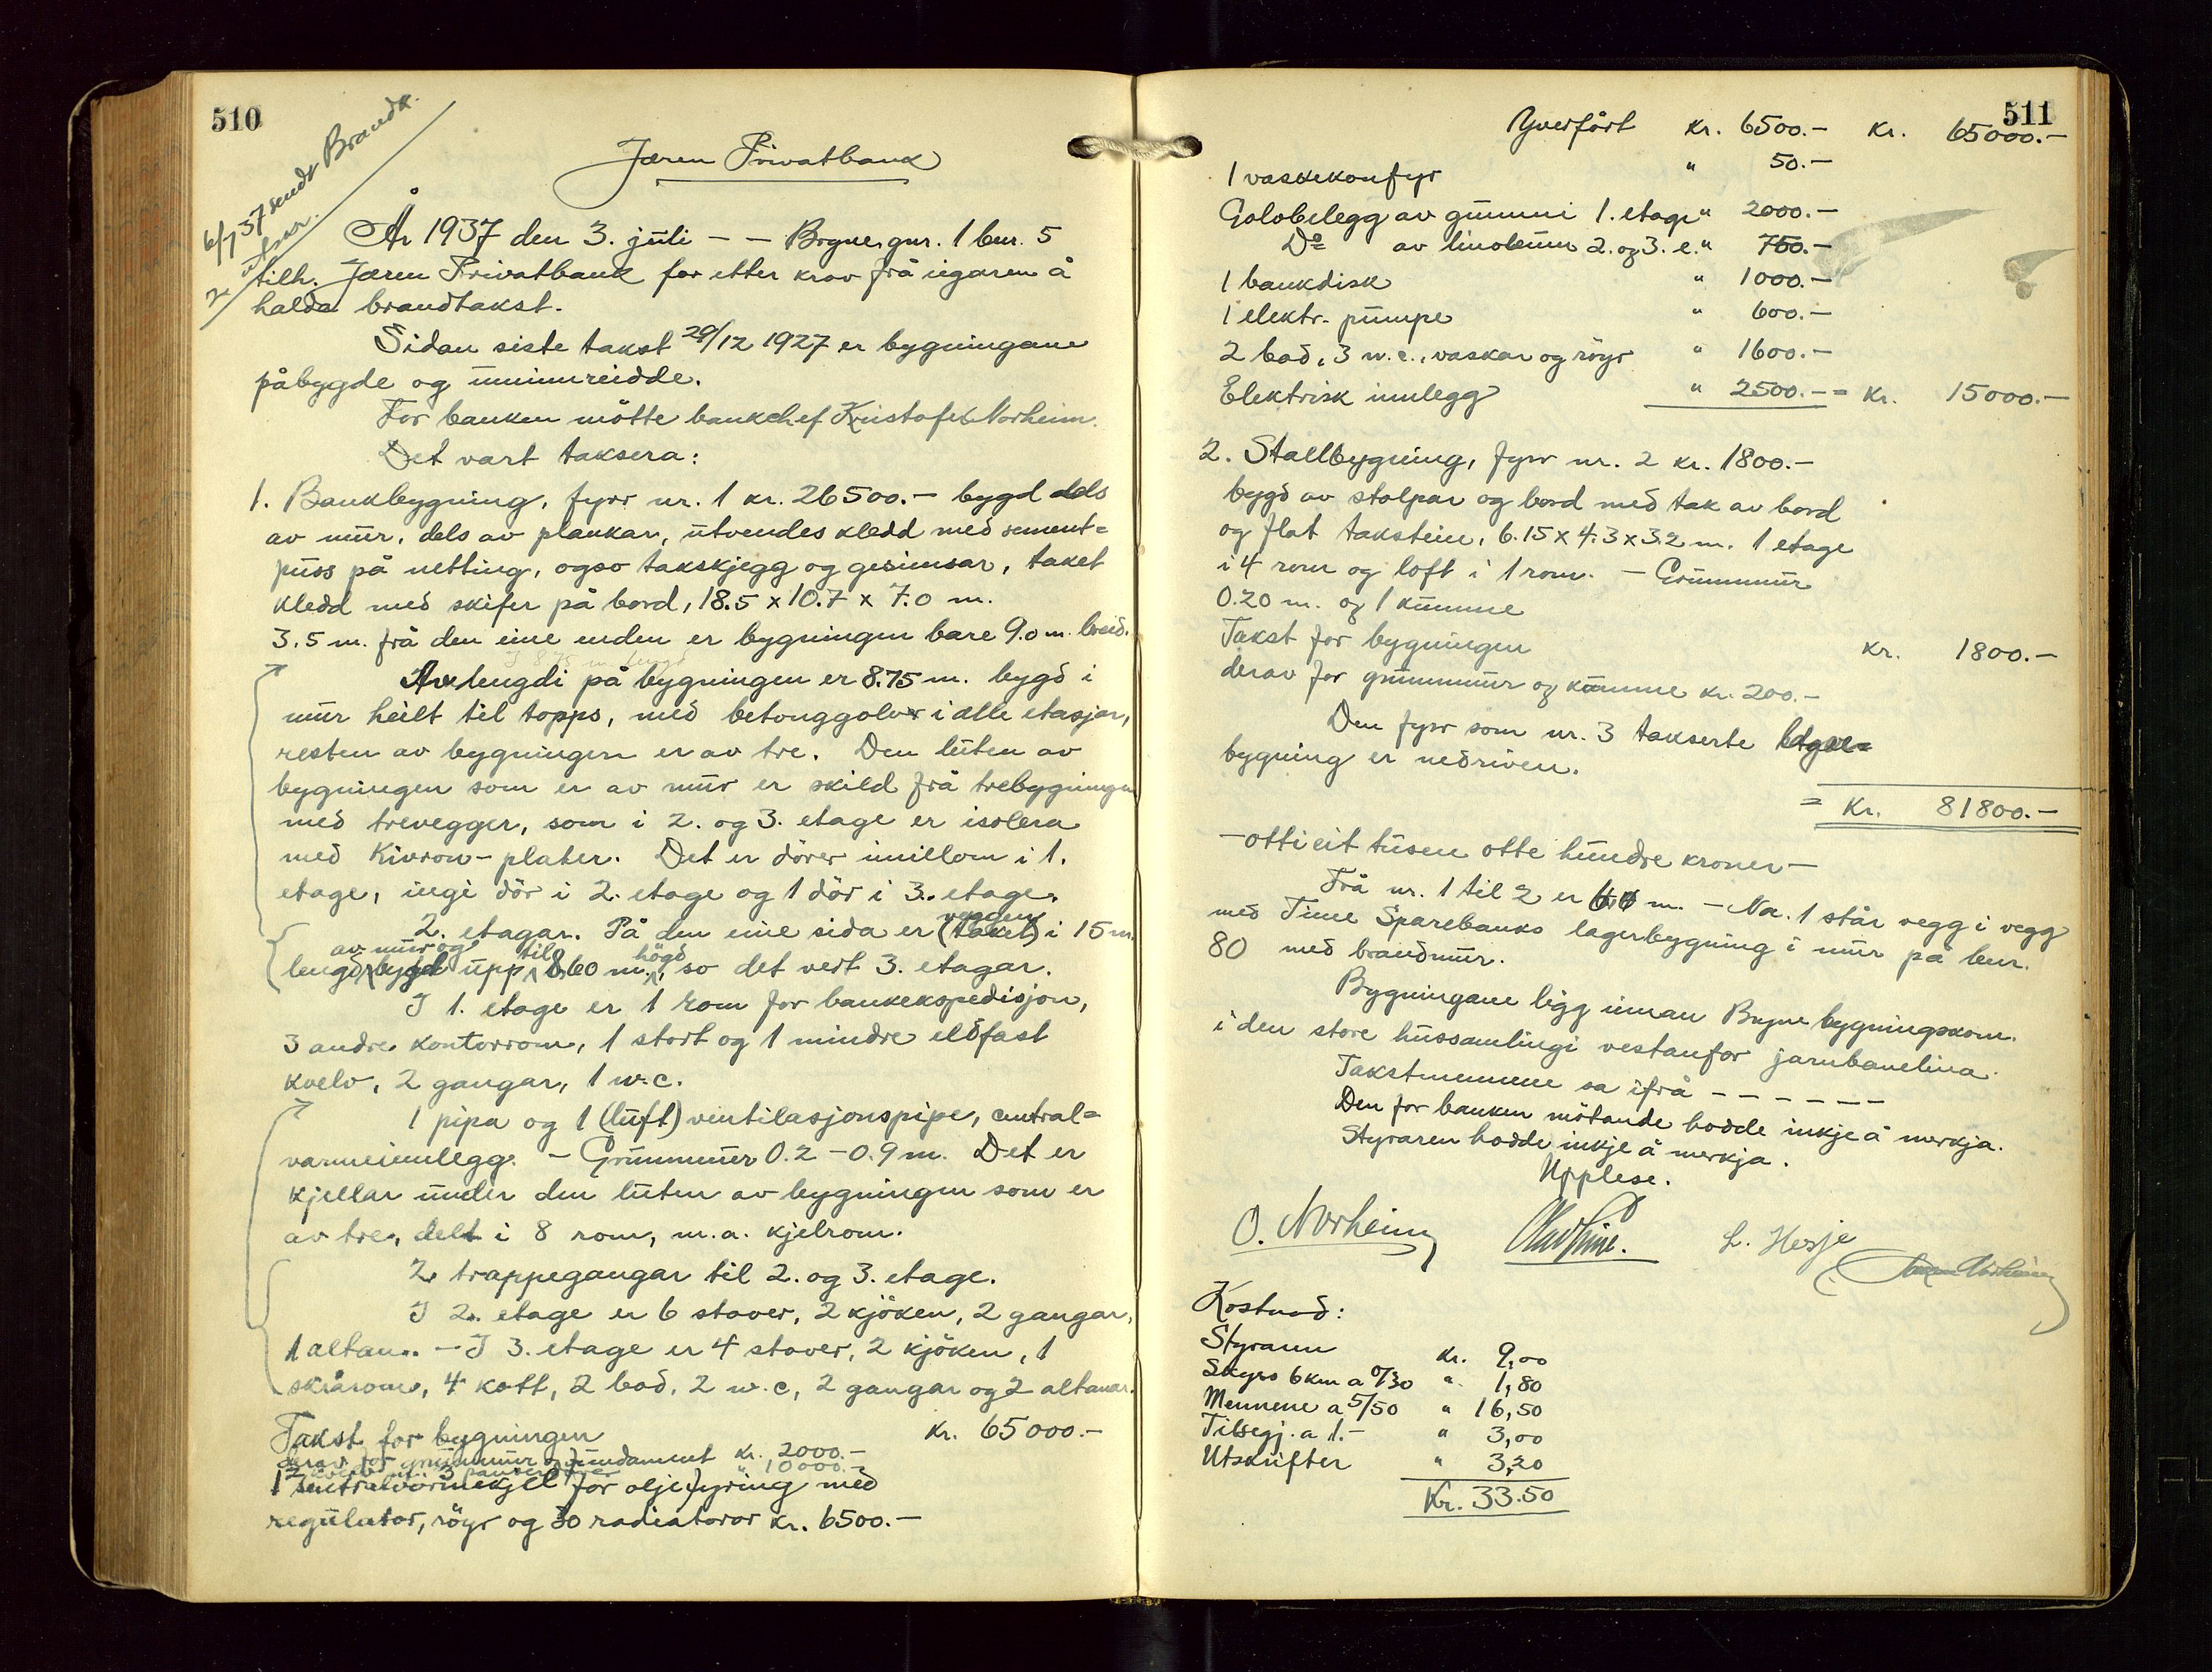 510
6/7 37 sendt Brandk.
2 utskr.
Jæren Privatbank
År 1937 den 3. juli - - Bryne, gnr. 1 bnr. 5
tilh. Jæren Privatbank for etter krav frå eigaren å
halda brandtakst.
Sidan siste takst 29/12 1927 er bygningane
påbygde og uminnreidde.
For banken møtte bankchef Kristofer Norheim.
Det vart taksera:
1. Bankbygning, fyrr nr. 1 kr. 26500.- bygd dels
av mur, dels av plankar, utvendes kledd med sement=
puss på netting, ogso takskjegg og gesimsar, taket
kledd med skifer på bord, 18.5 x 10.7 x 7.0 m.
3.5 m. frå den eine enden er bygningen bare 9.0 m. breid.
Av lengdi på bygningen er 8.75 m. bygd i
mur heilt til topps, med betonggolv i alle etasjar,
resten av bygningen er av tre. Den luten av
bygningen som er av mur er skild frå trebygningen
med trevegger, som i 2. og 3. etage er isolera
med Kivron-plater. Det er dörer imillom i 1.
etage, ingi dör i 2. etage og 1 dör i 3. etage.
2. etagar. På den eine sida er (taket) veggen i 15 m.
lengd av mur og bygd upp til 8.60 m. högd, so det vert 3. etagar.
I 1. etage er 1 rom for bankekspedisjon,
3 andre kontorrom, 1 stort og 1 mindre eldfast
kvelv, 2 gangar, 1 w.c.
1 pipa og 1 (luft) ventilasjonspipe, central=
varmeinnlegg. - Grunnmur 0.2 - 0.9 m. Det er
kjellar under den luten av bygningen som er
av tre, delt i 8 rom, m.a. kjelrom.
2 trappegangar til 2. og 3. etage.
I 2. etage er 6 stover, 2 kjöken, 2 gangar,
1 altan. - I 3. etage er 4 stover, 2 kjöken, 1
skrårom, 4 kott, 2 bad, 2 w.c, 2 gangar og 2 altanar.
Takst for bygningen kr. 65000.-
derav for grunnmur og fundament kr. 2000.-
2 kvelv m. 3 panserdører " 10000.-
1 sentralvarmekjel for oljefyring med
regulator, röyr og 30 radiatorar kr. 6500.-
511
Yverført kr. 6500.- kr. 65000.-
1 vaskekomfyr " 50.-
Golvbelegg av gummi 1. etage " 2000.-
Do av linoleum 2. og 3. e. " 750.-
1 bankdisk " 1000.-
1 elektr. pumpe " 600.-
2 bad, 3 w.c., vaskar og röyr " 1600.-
Elektrisk innlegg " 2500.- = kr. 15000.-
2. Stallbygning, fyrr nr. 2 kr. 1800.-
bygd av stolpar og bord med tak av bord
og flat takstein, 6.15 x 4.3 x 3.2 m. 1 etage
i 4 rom og loft i 1 rom. - Grunnmur
0.20 m. og 1 kumme
Takst for bygningen kr. 1800.-
derav for grunnmur og kumme kr. 200.-
Den fyrr som nr. 3 takserte
bygning er nedriven.
= Kr. 81800.-
- otti eit tusen otte hundre kroner -
Frå nr. 1 til 2 er m. - Nr. 1 står vegg i vegg
med Time Sparebanks lagerbygning i mur på bnr.
80 med brandmur.
Bygningane ligg innan Bryne bygningskom.
i den store hussamlingi vestanfor jarnbanelina.
Takstmennene sa ifrå - - - - - -
Den for banken mötande hadde inkje å merkja.
Styraren hadde inkje å merkja.
Upplese.
O. Norheim Olav Time. L. Hesje
Kostnad:
Styraren kr. 9,00
Skyss 6 km a 0/30 " 1,80
Mennene a 5/50 " 16,50
Tilsegj. a 1.- " 3,00
Utskrifter " 3,20
Kr. 33.50